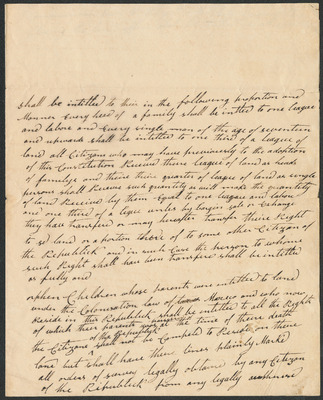 shall be intitled to their in the following proportion and
Manner Every head of a family shall be intitled to one league
and labore and Every single man of the age of seventeen
and upwards shall be intitled to one third of a league of
land all Citizens who may have previously to the adoption
of this Constitution Received there league of land as heads
of familys and those there quarter of league of land as single
persons shall Receive such quantity as will make the quantity
of land Received by them Equal to one league and labor
and one third of a legue unless by bargin sale or Exchange
they have transfered or may hereafter transfer their Right
to sd land or a portion thereof to some other Citizen of
the Republick and in such Case the person to whome
such Right shall have been transfered shall be intitled
as fully and
orphen Children whose parents were intitled to land
under the Colonisation law of Mexico and who now
Reside in this Republick shall be intitled to all the Rights
of which their parents at the time of their death
of the Republick
the Citizens shall not be Compeld to Reside on there
land but shall have their lines plainly Marked
all orders of survey legally obtaine by any Citizen
of the Republick from any legally